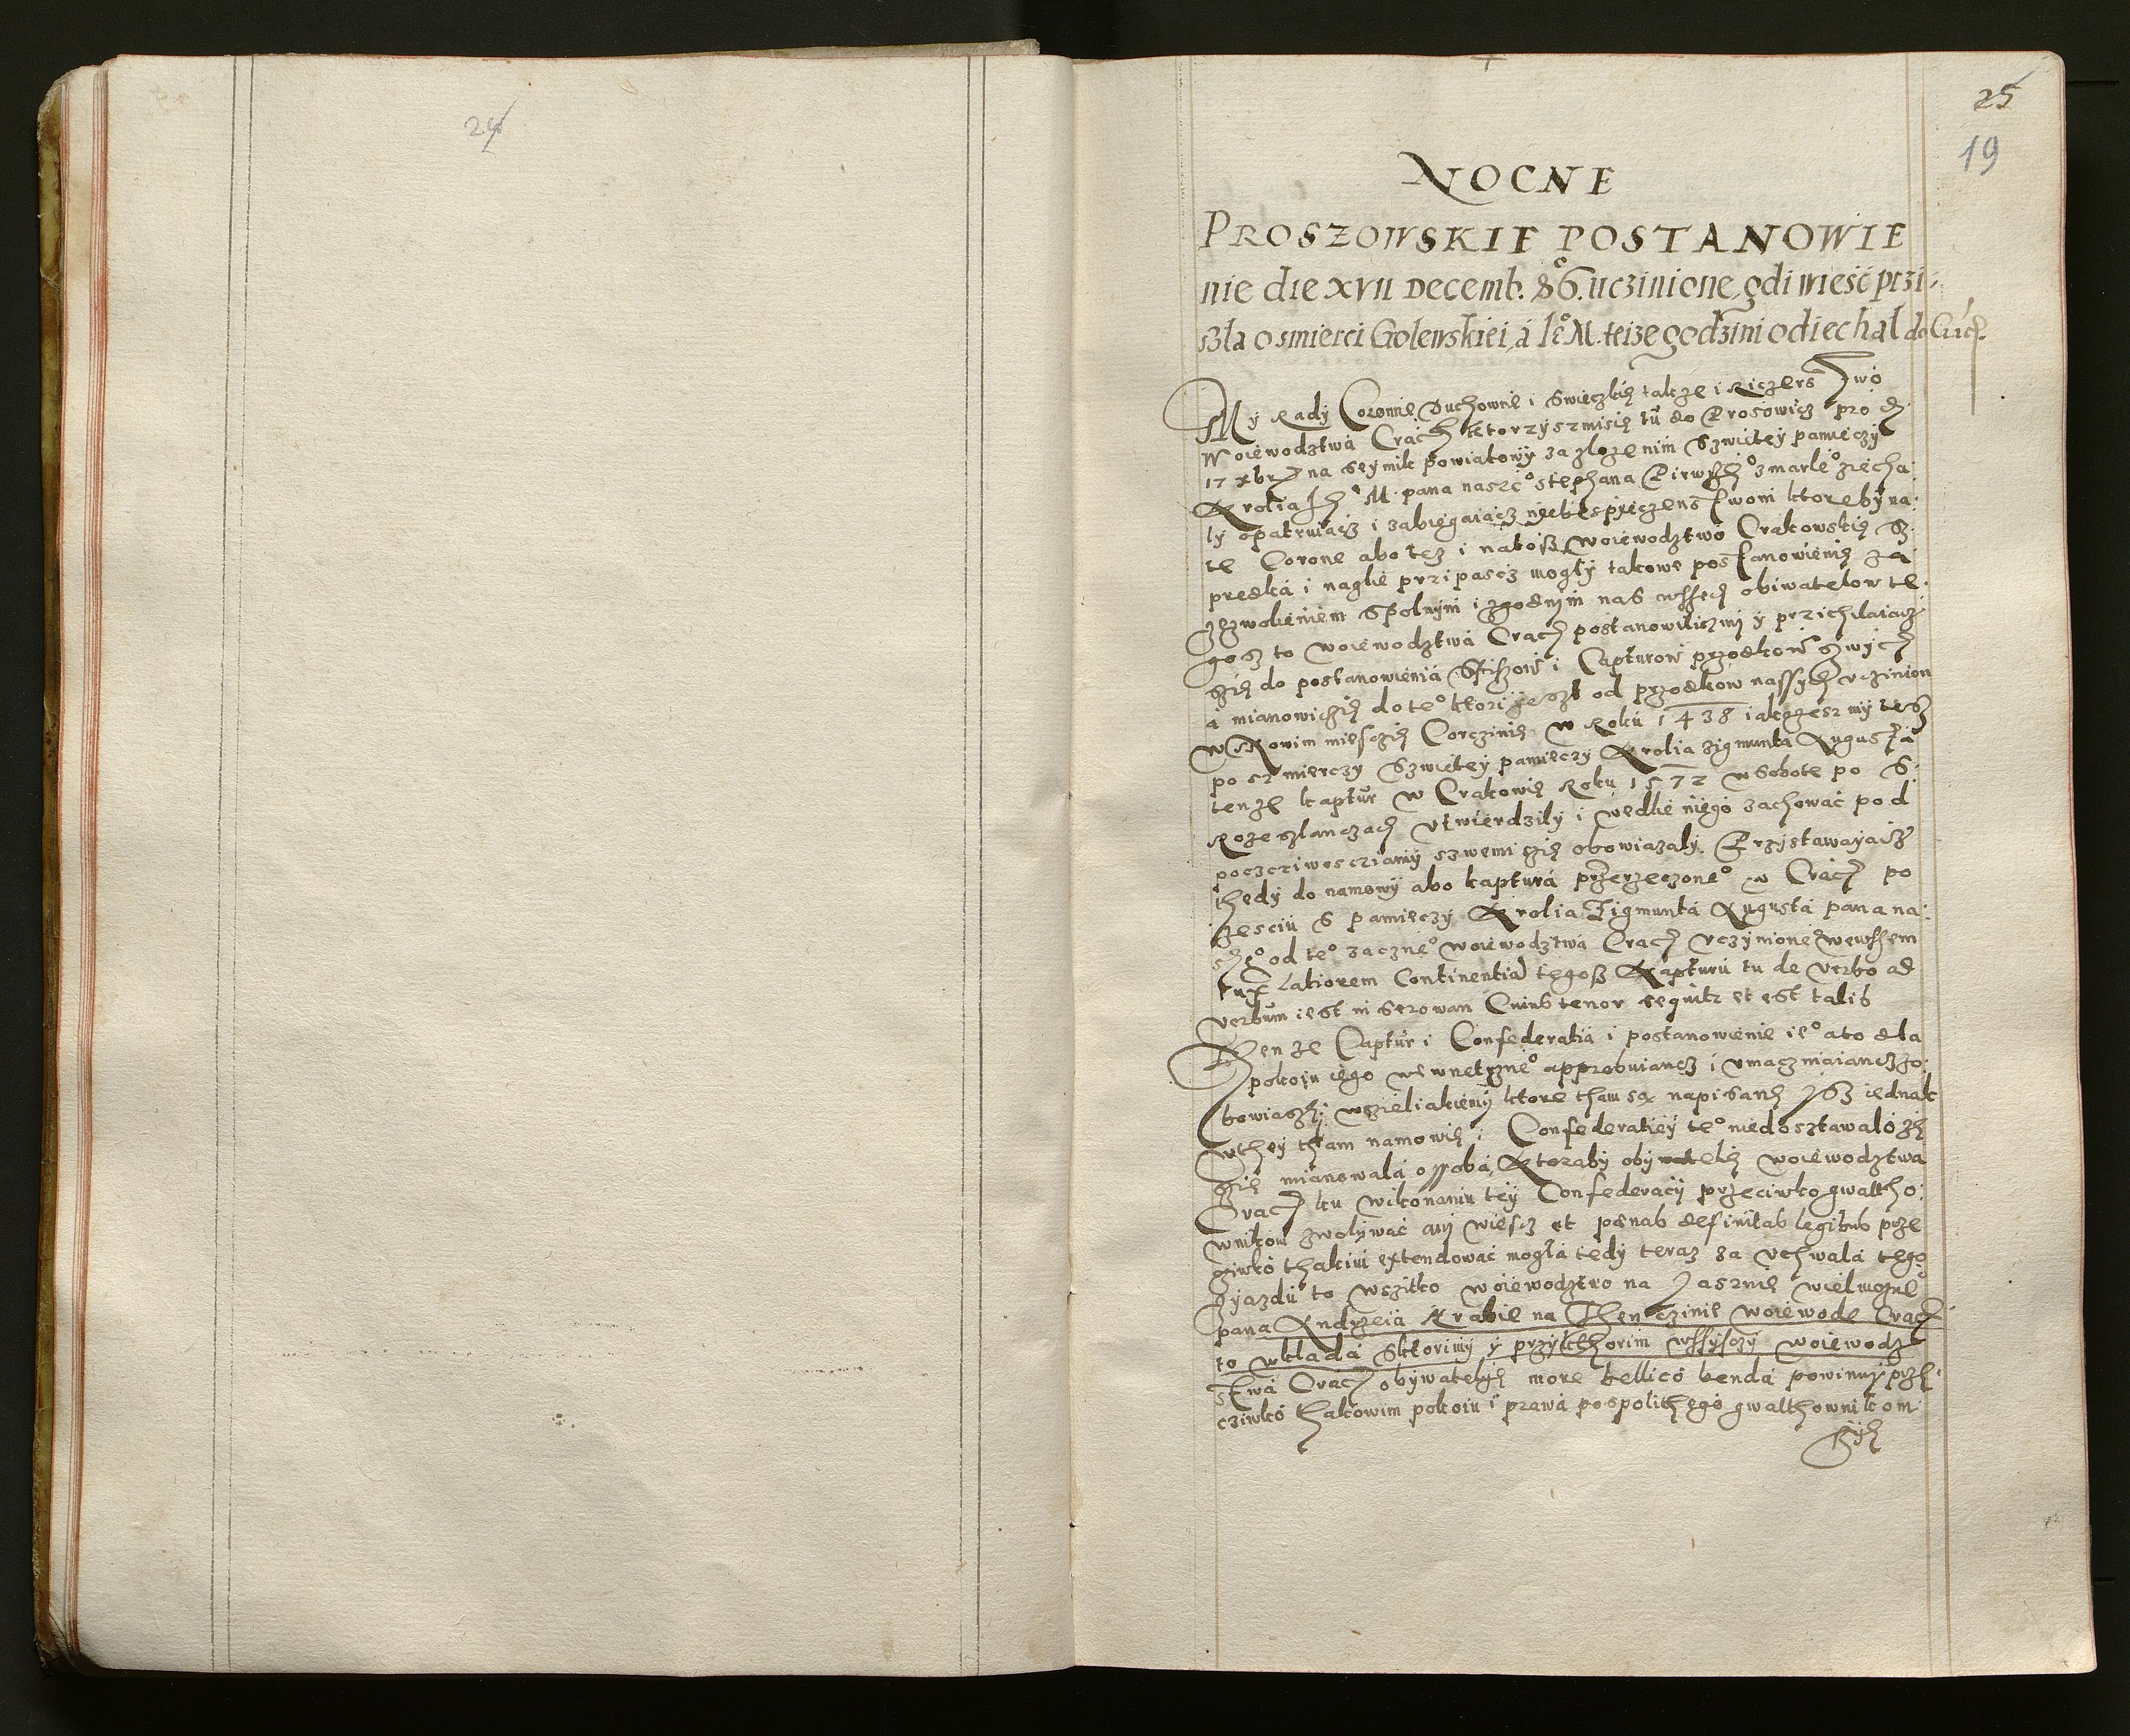 24
25
19
NOCNE
PROSZOWSKIE POSTANOWIE
nie die XVII Decemb. 86. uczinione, gdi wieść przi-
szla o smierci Golewskiei, á Je° M. teize godzini odiechal do Crac.
My Rady Coronne Duchowne i Swieczkię takze i Riczerstwo
Woiewodztwá Crach ktorzyszmisię tu do Prosowicz pro d
17 xbr na seymik powiatowy za zlozenim Szwietey pamieczy
Krolia Je° M. pana nasze° Stephana Pirwsze° zmarle° ziecha-
ly opatruiącz i zabiegaiącz niebespieczenstwom ktoreby na
te Corone abo tez i natosz Woiewodztwo Crakowskię z
predká i naglie przipascz mogly takowe postanowienię za
zezwolieniem spolnym i zgodnim nas wssech obiwatelow te-
gosz to woiewodztwá Crach postanowiliszmi y przichilaiącz
szię do postanowieniá Sficzow i Capturow przodkow szwych
á mianowiczię do te° ktori jeszt od przodkow nassych uczinion
w Nowim miesczię Corczinię w Roku 1438 iakozesz my tesz
po szmierczy Szwietey pamieczy Krolia Zigmunta Augustá
tenze kaptur w Crakowię Roku 1572 w Sobote po S.
Rozeszlanczach utwierdzily i wedlie niego zachować pod
poczcziwoscziamy szwemi szię obowiazaly. Przystawayącz
thedy do namowy abo kapturá przerzeczone° w Crach po
zesciu S pamieczy Krolia Zigmuntá Augustá pana na-
sze° od te° zaczne° woiewodztwá Crach uczynione° wewssem
iux Latiorem Continentiá tegosz Kapturu tu de verbo ad
verbum iest inserowan Cuius tenor sequitr et est talis
Ten ze Captur i Confederatiá i postanowienie ie° ato dla
pokoiu iego wewnetrzne° approbuiancz i umaczniaiancz go
bowiaszki wszeliakiemy ktore tham są napisanę Isz iednak
wthey tham namowię i Confederatiey te° niedosztawaló zę
szię mianowalá ossobá, Ktoraby obywatelię woiewodztwá
Crach ku wikonaniu tey Confederacy przeciwko gwaltho-
wnikom zwolywać any wiescz et pœnas definitas legibus prze
ziwkó thakim extendować moglá tedy teraz za uchwalá tego
zyazdu to wszitko woiewodztwo na Jasznie wielmozne°
pana Andrzeiá Krabie na Thenczinie woiewode Crach
to wkladá sktorimy y przykthorim wssysczy woiewodz
stwá Crach obywatelię more bellico bendá powinny prze-
cziwkó thakowim pokoiu i prawá pospolithego gwalthownikom